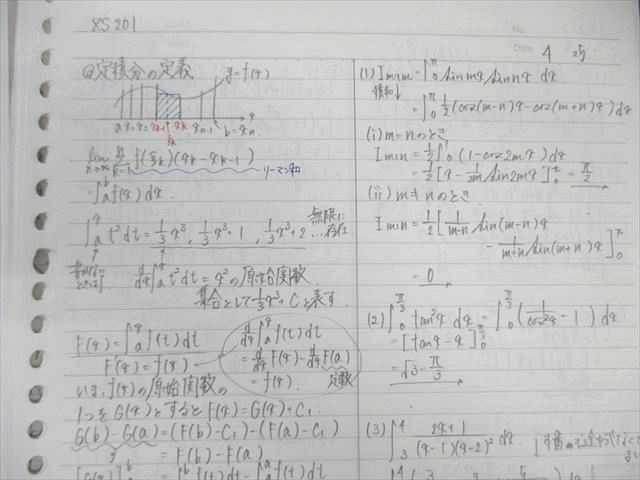 XS201
No.
Date 4 · 25
@定積分の定義
y=f(x)
a x₁ x₂ x_{k-1} x_k x_{n-1} b=x_n
ξ_k
lim_{n→∞} Σ_{k=1}^{n} f(ξ_k)(x_k-x_{k-1})
リーマン和
=∫_a^b f(x)dx.
∫_a^x t²dt=1/3x³, 1/3x³+1, 1/3x³+2 … 無限に存在
d/dx∫_a^x t²dt=x²の原始関数
集合として1/3x³+Cと表す
F(x)=∫_a^x f(t)dt
F'(x)=f(x)
d/dx∫_a^x f(t)dt
=d/dx F(x)-d/dx F(a)
定数
=f(x).
いま、f(x)の原始関数の
1つをG(x)とするとF(x)=G(x)+C₁
G(b)-G(a)=(F(b)-C₁)-(F(a)-C₁)
=F(b)-F(a)
[G(x)]_a^b=∫^b f(t)dt-∫^a f(t)dt
(1) I_{m,n}=∫_0^π sin mx sin nx dx
積和↓
=∫_0^π 1/2(cos(m-n)x-cos(m+n)x)dx
(i) m=nのとき
I_{m,n}=1/2∫_0^π(1-cos2mx)dx
=1/2[x-1/2m sin2mx]_0^π=π/2
(ii) m≠nのとき
I_{m,n}=1/2[1/m-n sin(m-n)x
-1/m+n sin(m+n)x]_0^π
=0
(2) ∫_0^{π/3} tan²x dx=∫_0^{π/3}(1/cos²x-1)dx
=[tanx-x]_0^{π/3}
=√3-π/3
(3) ∫_3^4 2x+1/(x-1)(x-2)² dx